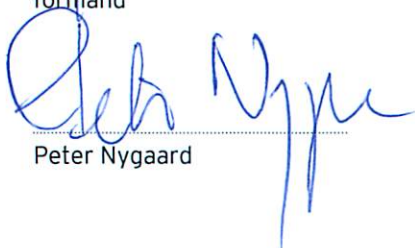 formand
Peter Nygaard